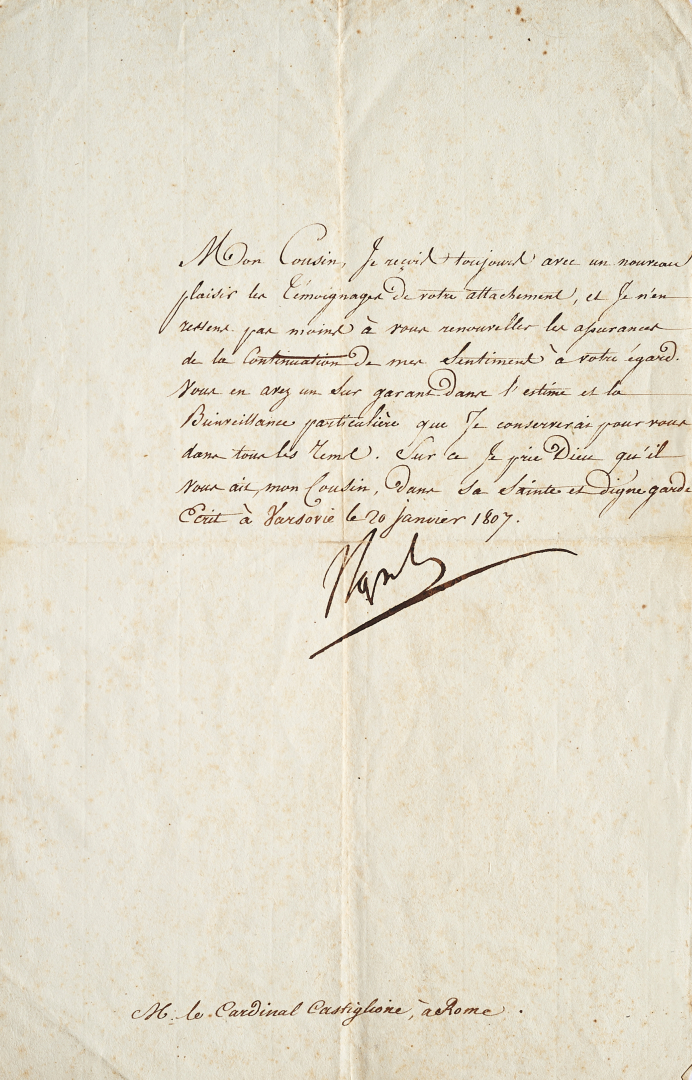 Mon Cousin, Je reçois toujours avec un nouveau
plaisir les témoignages de votre attachement, et Je n'en
ressens pas moins à vous renouveller les assurances
de la Continuation de mes Sentimens à votre égard.
Vous en avez un Sur garant dans l'estime et la
Bienveillance particulière que Je conserverai pour vous
dans tous les Tems. Sur ce Je prie Dieu qu'il
Vous ait, mon Cousin, dans Sa Sainte et digne garde
Ecrit à Varsovie le 20 janvier 1807.
Napole
M. le Cardinal Castiglione, à Rome.